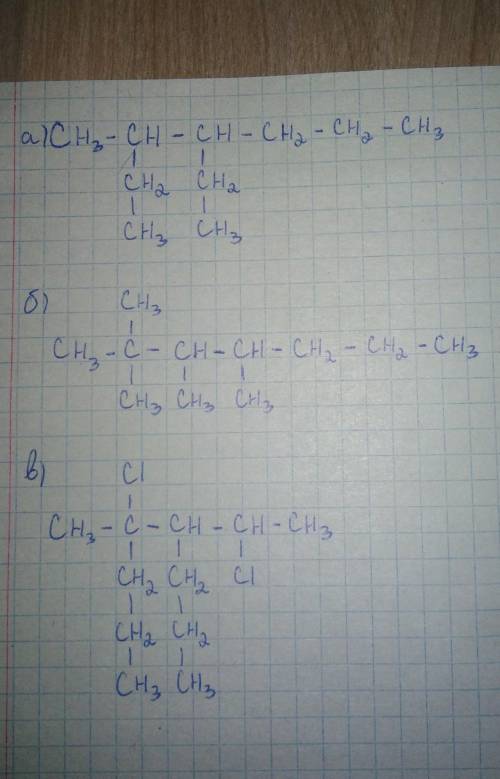 а) CH3 - CH - CH - CH2 - CH2 - CH3
CH2 CH2
CH3 CH3
б) CH3
CH3 - C - CH - CH - CH2 - CH2 - CH3
CH3 CH3 CH3
в) Cl
CH3 - C - CH - CH - CH3
CH2 CH2 Cl
CH2 CH2
CH3 CH3